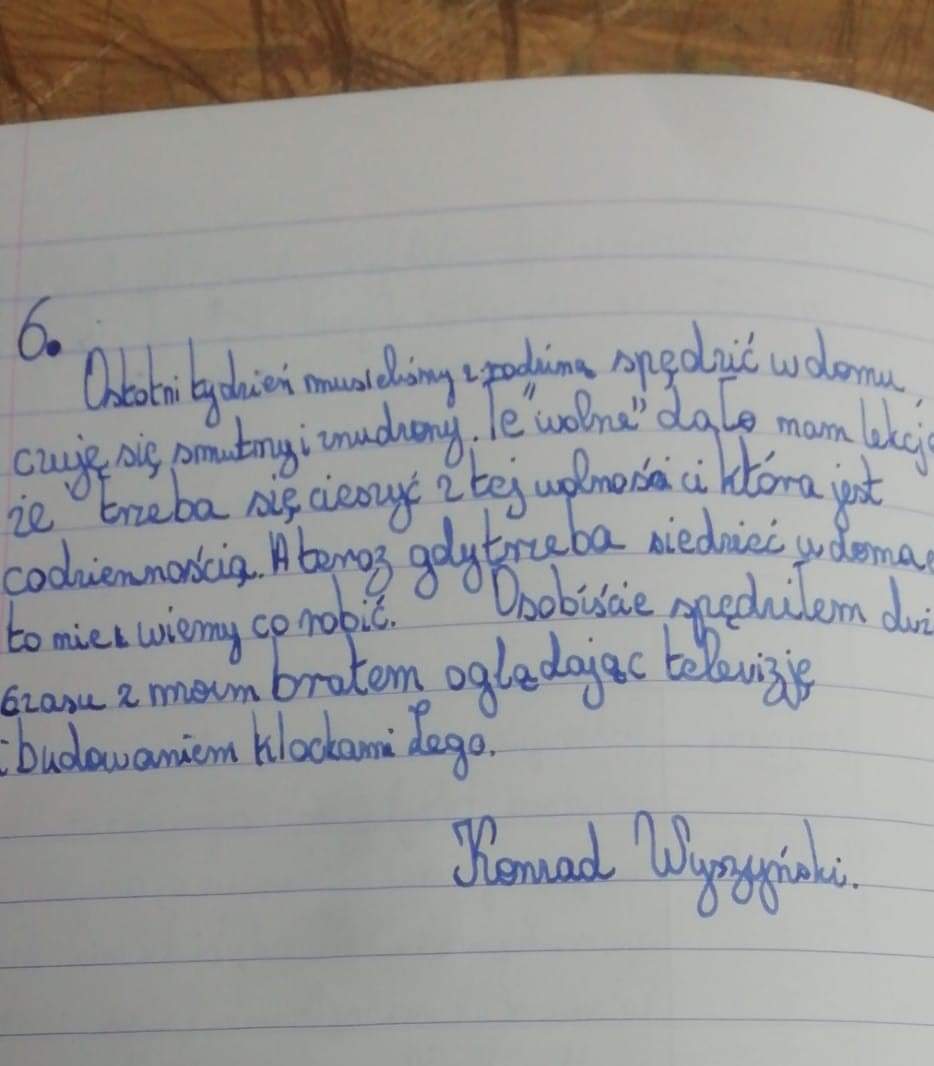 6.
Ostatni tydzień musieliśmy z rodziną spędzić w domu
czuję się smutny i znudzony. Te "wolne" dało mam lekcję
że trzeba się cieszyć z tej wolności która jest
codziennością. A teraz gdy trzeba siedzieć w doma
to nie wiemy co robić. Osobiście spędziłem
czasu z moim bratem oglądając telewizję
i budowaniem klockami Lego.
Konrad Wyszyński.